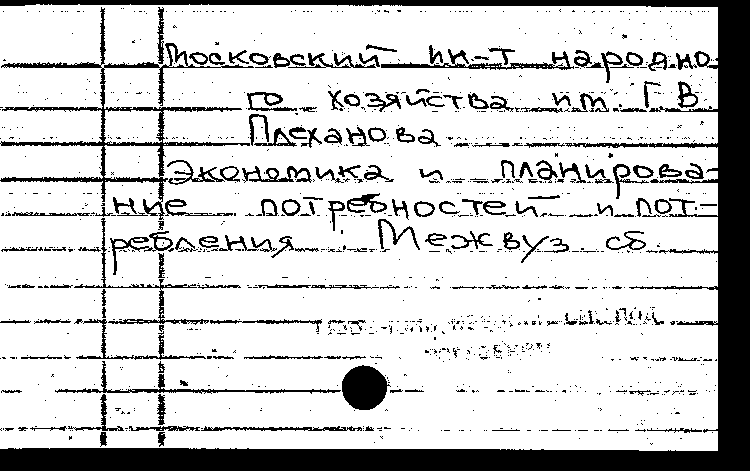 Московский ин-т народно-
го хозяйства им. Г.В.
Плеханова.
Экономика и планирова-
ние потребностей и пот-
ребления : Межвуз сб.